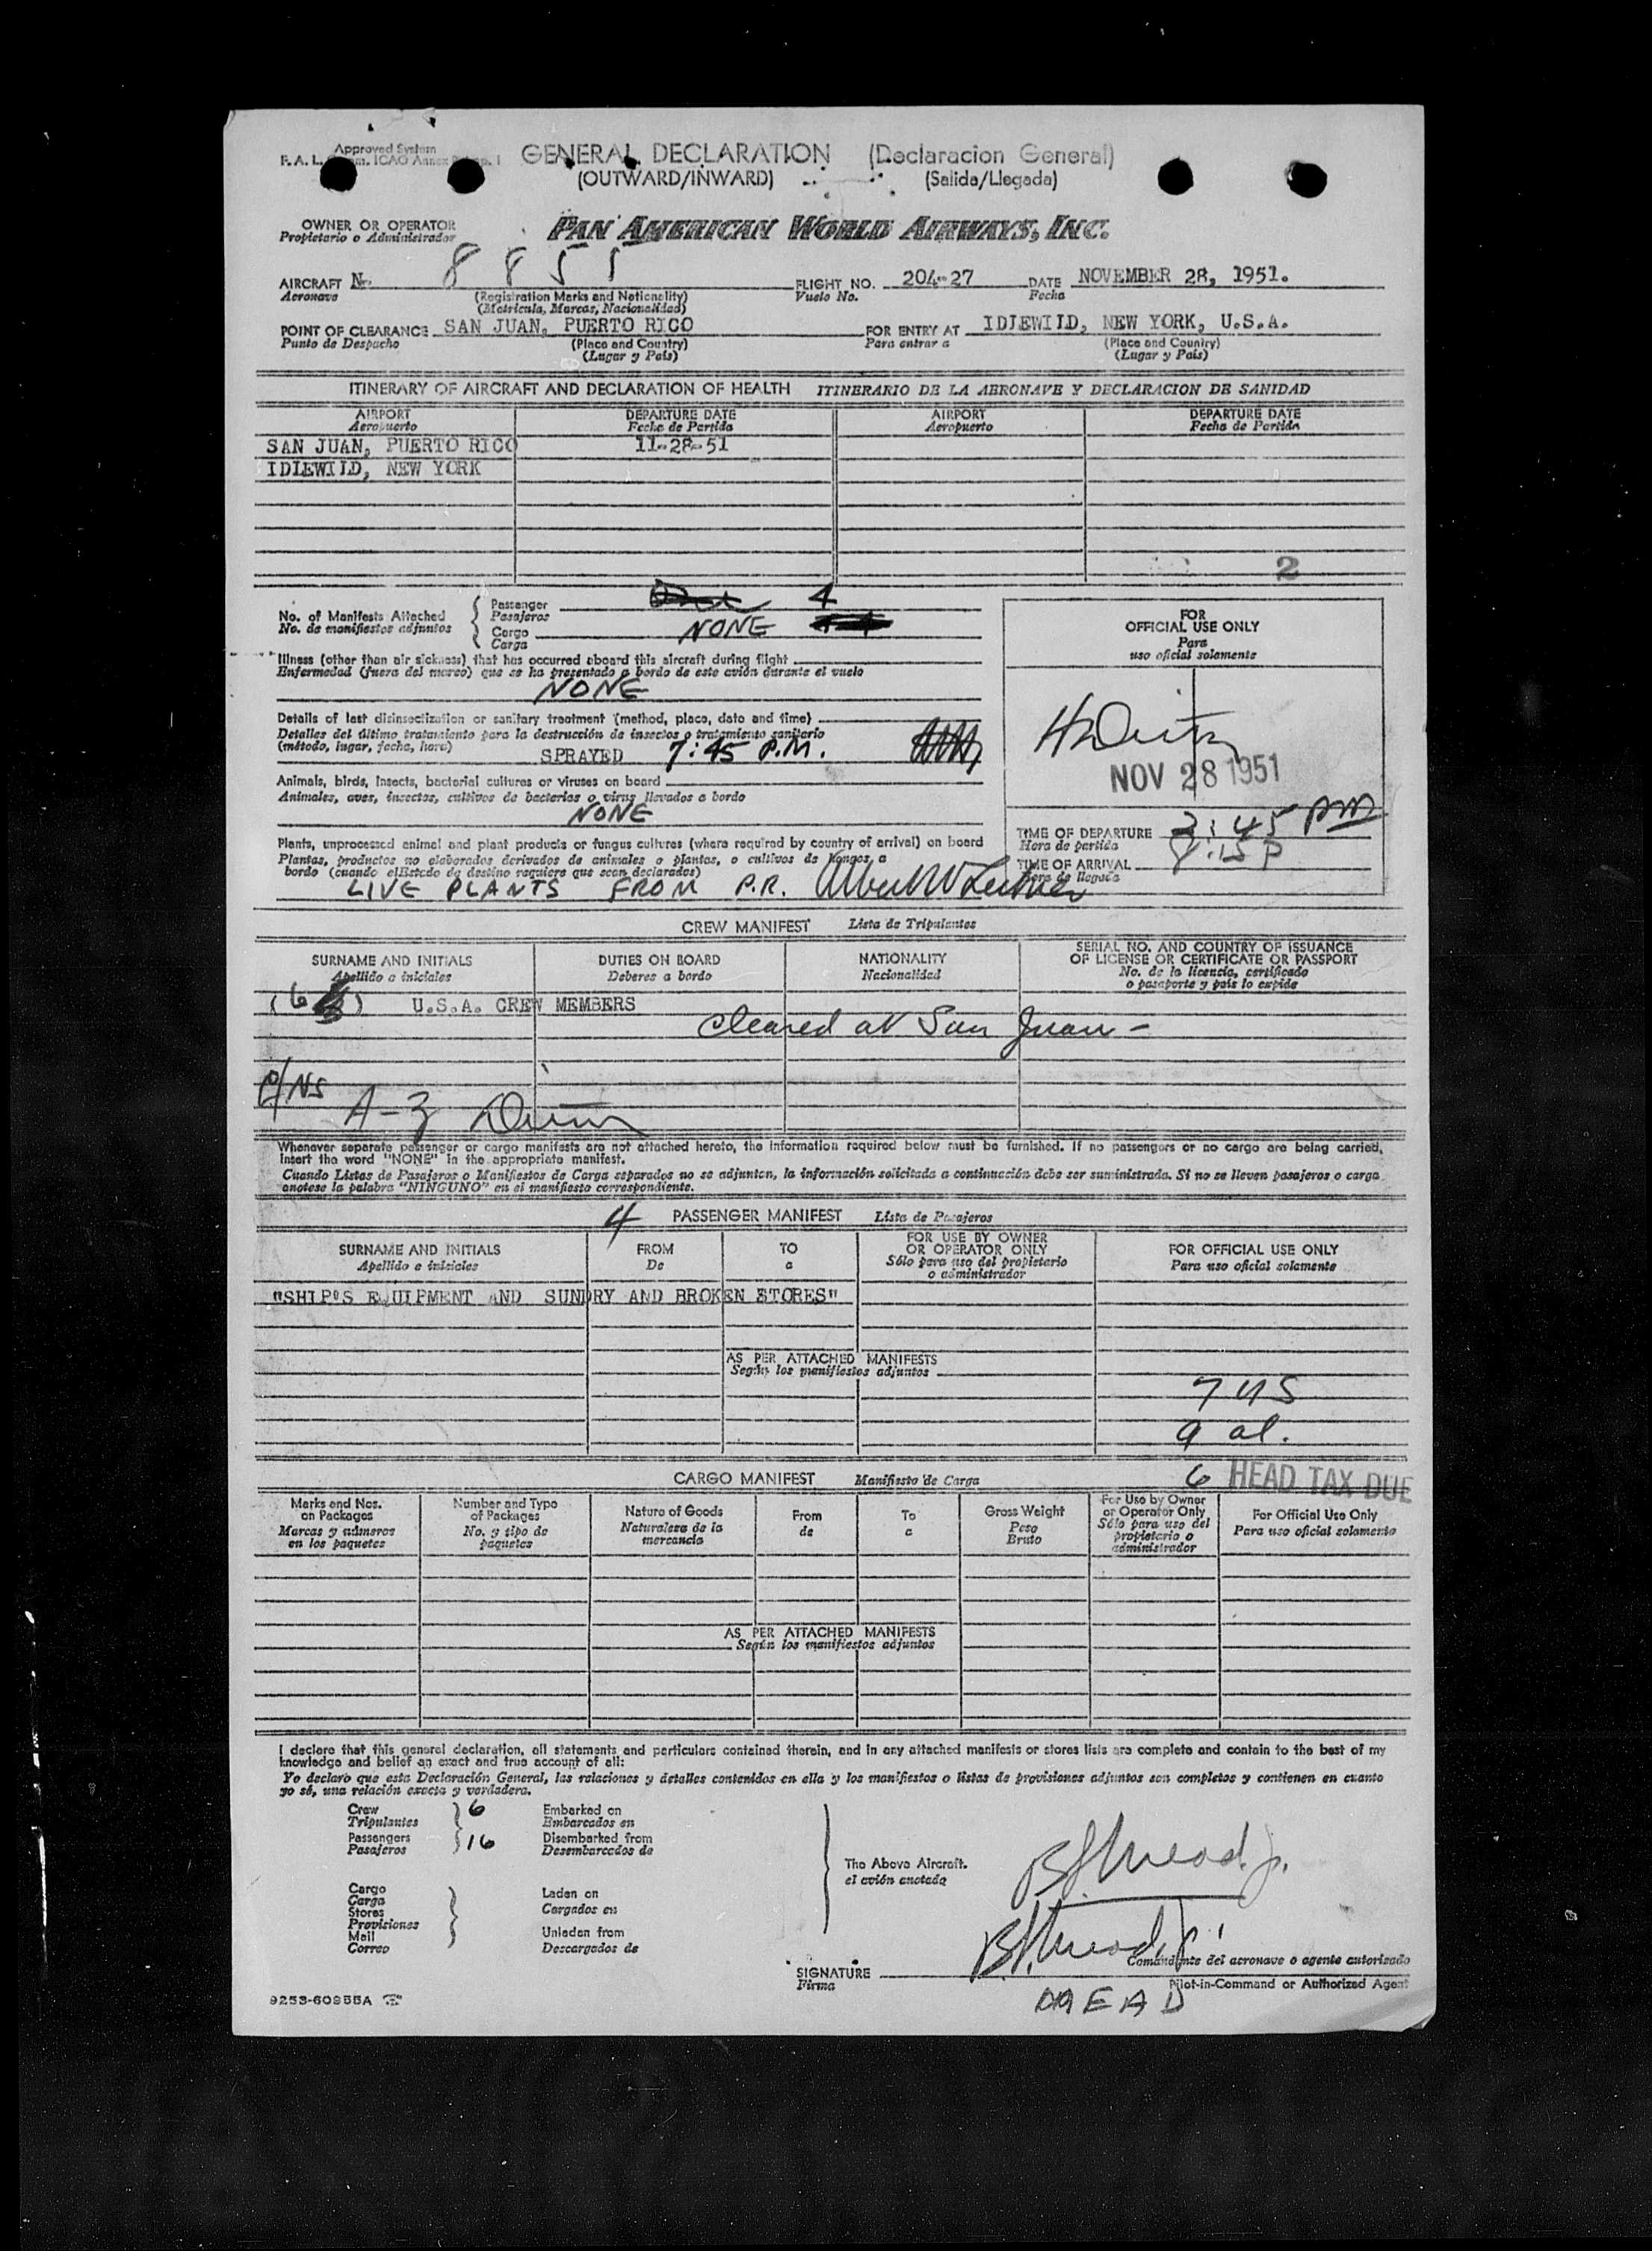 Approved System
F. A. L. Comm. ICAO Annex 9 App. 1
GENERAL DECLARATION (Declaracion General)
(OUTWARD/INWARD) (Salida/Llegada)
OWNER OR OPERATOR PAN AMERICAN WORLD AIRWAYS, INC.
Propietario o Administrador
AIRCRAFT N. 8855 FLIGHT NO. 204-27 DATE NOVEMBER 28, 1951.
Aeronave (Registration Marks and Nationality) Vuelo No. Fecha
(Matricula, Marcas, Nacionalidad)
POINT OF CLEARANCE SAN JUAN, PUERTO RICO FOR ENTRY AT IDLEWILD, NEW YORK, U.S.A.
Punto de Despacho (Place and Country) Para entrar a (Place and Country)
(Lugar y País) (Lugar y País)
ITINERARY OF AIRCRAFT AND DECLARATION OF HEALTH ITINERARIO DE LA AERONAVE Y DECLARACION DE SANIDAD
AIRPORT DEPARTURE DATE AIRPORT DEPARTURE DATE
Aeropuerto Fecha de Partida Aeropuerto Fecha de Partida
SAN JUAN, PUERTO RICO 11-28-51
IDLEWILD, NEW YORK
2
No. of Manifests Attached Passenger 4
No. de manifiestos adjuntos Pasajeros
Cargo NONE
Carga
FOR
OFFICIAL USE ONLY
Para
uso oficial solamente
Illness (other than air sickness) that has occurred aboard this aircraft during flight
Enfermedad (fuera del mareo) que se ha presentado a bordo de este avión durante el vuelo
NONE
Details of last disinsectization or sanitary treatment (method, place, date and time)
Detalles del último tratamiento para la destrucción de insectos o tratamiento sanitario
(método, lugar, fecha, hora) SPRAYED 7:45 P.M.
NOV 28 1951
Animals, birds, insects, bacterial cultures or viruses on board
Animales, aves, insectos, cultivos de bacterias o virus llevados a bordo
NONE
TIME OF DEPARTURE 2:45 PM
Hora de partida
TIME OF ARRIVAL 8:15 P
Hora de llegada
Plants, unprocessed animal and plant products or fungus cultures (where required by country of arrival) on board
Plantas, productos no elaborados derivados de animales o plantas, o cultivos de hongos, a
bordo (cuando el Estado de destino requiera que sean declarados)
LIVE PLANTS FROM P.R.
CREW MANIFEST Lista de Tripulantes
SURNAME AND INITIALS DUTIES ON BOARD NATIONALITY SERIAL NO. AND COUNTRY OF ISSUANCE
OF LICENSE OR CERTIFICATE OR PASSPORT
Apellido e iniciales Deberes a bordo Nacionalidad No. de la licencia, certificado
o pasaporte y país lo expide
(6) U.S.A. CREW MEMBERS
Cleared at San Juan -
P/NS A-3
Whenever separate passenger or cargo manifests are not attached hereto, the information required below must be furnished. If no passengers or no cargo are being carried,
insert the word "NONE" in the appropriate manifest.
Cuando Listas de Pasajeros o Manifiestos de Carga separados no se adjunten, la información solicitada a continuación debe ser suministrada. Si no se lleven pasajeros o carga
anotese la palabra "NINGUNO" en el manifiesto correspondiente.
4 PASSENGER MANIFEST Lista de Pasajeros
SURNAME AND INITIALS FROM TO FOR USE BY OWNER OR OPERATOR ONLY FOR OFFICIAL USE ONLY
Apellido e iniciales De a Sólo para uso del propietario o administrador Para uso oficial solamente
"SHIP'S EQUIPMENT AND SUNDRY AND BROKEN STORES"
AS PER ATTACHED MANIFESTS
Según los manifiestos adjuntos
7 US
9 al.
CARGO MANIFEST Manifiesto de Carga 6 HEAD TAX DUE
Marks and Nos. on Packages Number and Type of Packages Nature of Goods From To Gross Weight For Use by Owner or Operator Only For Official Use Only
Marcas y números en los paquetes No. y tipo de paquetes Naturaleza de la mercancia de a Peso Bruto Sólo para uso del propietario o administrador Para uso oficial solamente
AS PER ATTACHED MANIFESTS
Según los manifiestos adjuntos
I declare that this general declaration, all statements and particulars contained therein, and in any attached manifests or stores lists are complete and contain to the best of my
knowledge and belief an exact and true account of all:
Yo declaro que esta Declaración General, las relaciones y detalles contenidos en ella y los manifiestos o listas de provisiones adjuntos son completos y contienen en cuanto
yo sé, una relación exacta y verdadera.
Crew 6 Embarked on
Tripulantes Embarcados en
Passengers 16 Disembarked from
Pasajeros Desembarcados de
The Above Aircraft.
el avión anotado
Cargo
Carga Laden on
Stores Cargados en
Provisiones
Mail Unladen from
Correo Descargados de
Comandante del aeronave o agente autorizado
SIGNATURE
Firma Pilot-in-Command or Authorized Agent
MEAD
9253-60955A